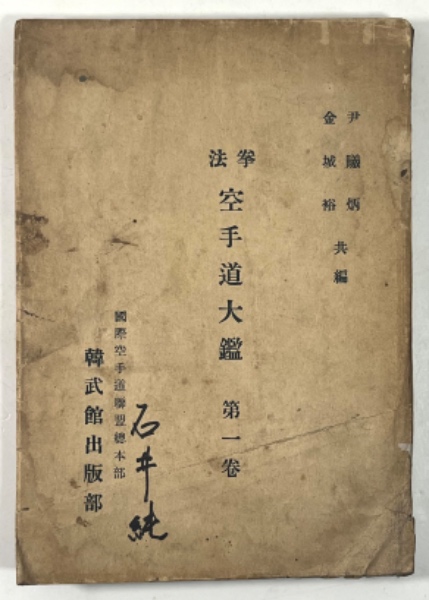 尹曦炳
金城裕
共編
拳法
空手道大鑑 第一卷
石井純
國際空手道聯盟總本部
韓武館出版部